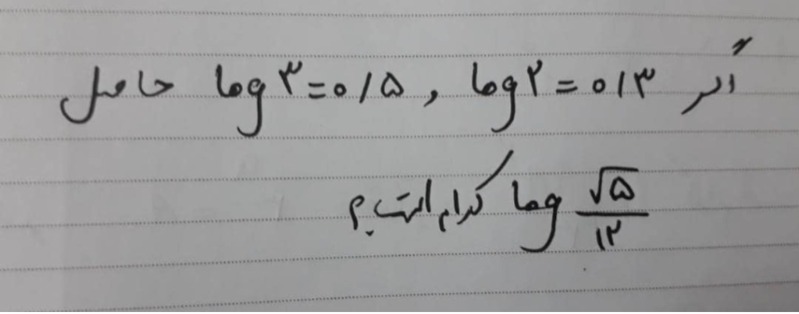 اگر log ۲ = ۰/۳ , log ۳ = ۰/۵ حاصل
log √۵/۱۲ کدام است؟